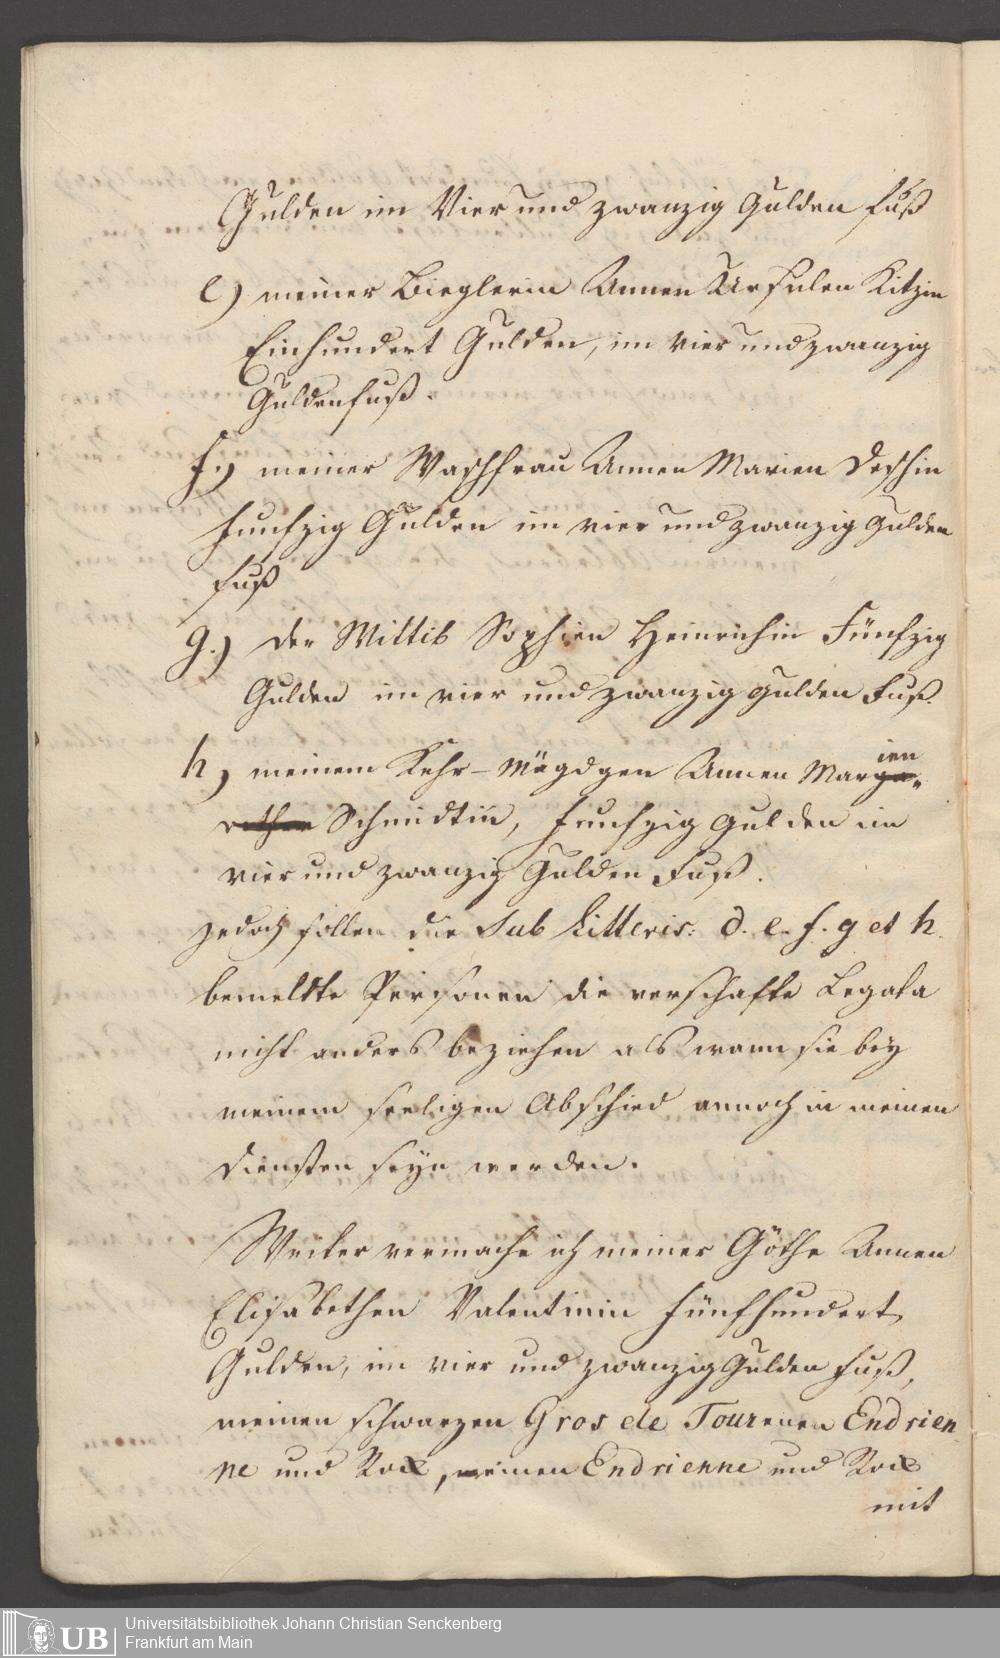 Gulden im Vier und zwanzig Gulden fuß
e) meiner Bieglerin Annen Ursulen Kitzin
Einhundert Gulden, im vier und zwanzig
Guldenfuß.
f.) meiner Waschfrau Annen Marien Deschin
funfzig Gulden im vier und zwanzig Gulden
fuß
g.) der Wittib Sophien Heinrichin Fünfzig
Gulden im vier und zwanzig gulden Fuß.
h) meinem Kehr-Mägdgen Annen Marga-ien
rethen Schmidtin, funfzig Gulden im
vier und zwanzig Gulden Fuß.
jedoch sollen die Sub Litteris: d. e. f. g et h.
bemeldte Personen die verschafte Legata
nicht anders beziehen als wann sie bey
meinem seeligen Abschied annoch in meinen
Diensten seyn werden.
Weiter vermache ich meiner Göthe Annen
Elisabethen Valentinin fünfhundert
Gulden, im vier und zwanzig Gulden fuß,
meinen schwarzen Gros de Tourenen Endrien
ne und Rock, meinen Endrienne und Rock
mit
UB
Universitätsbibliothek Johann Christian Senckenberg
Frankfurt am Main